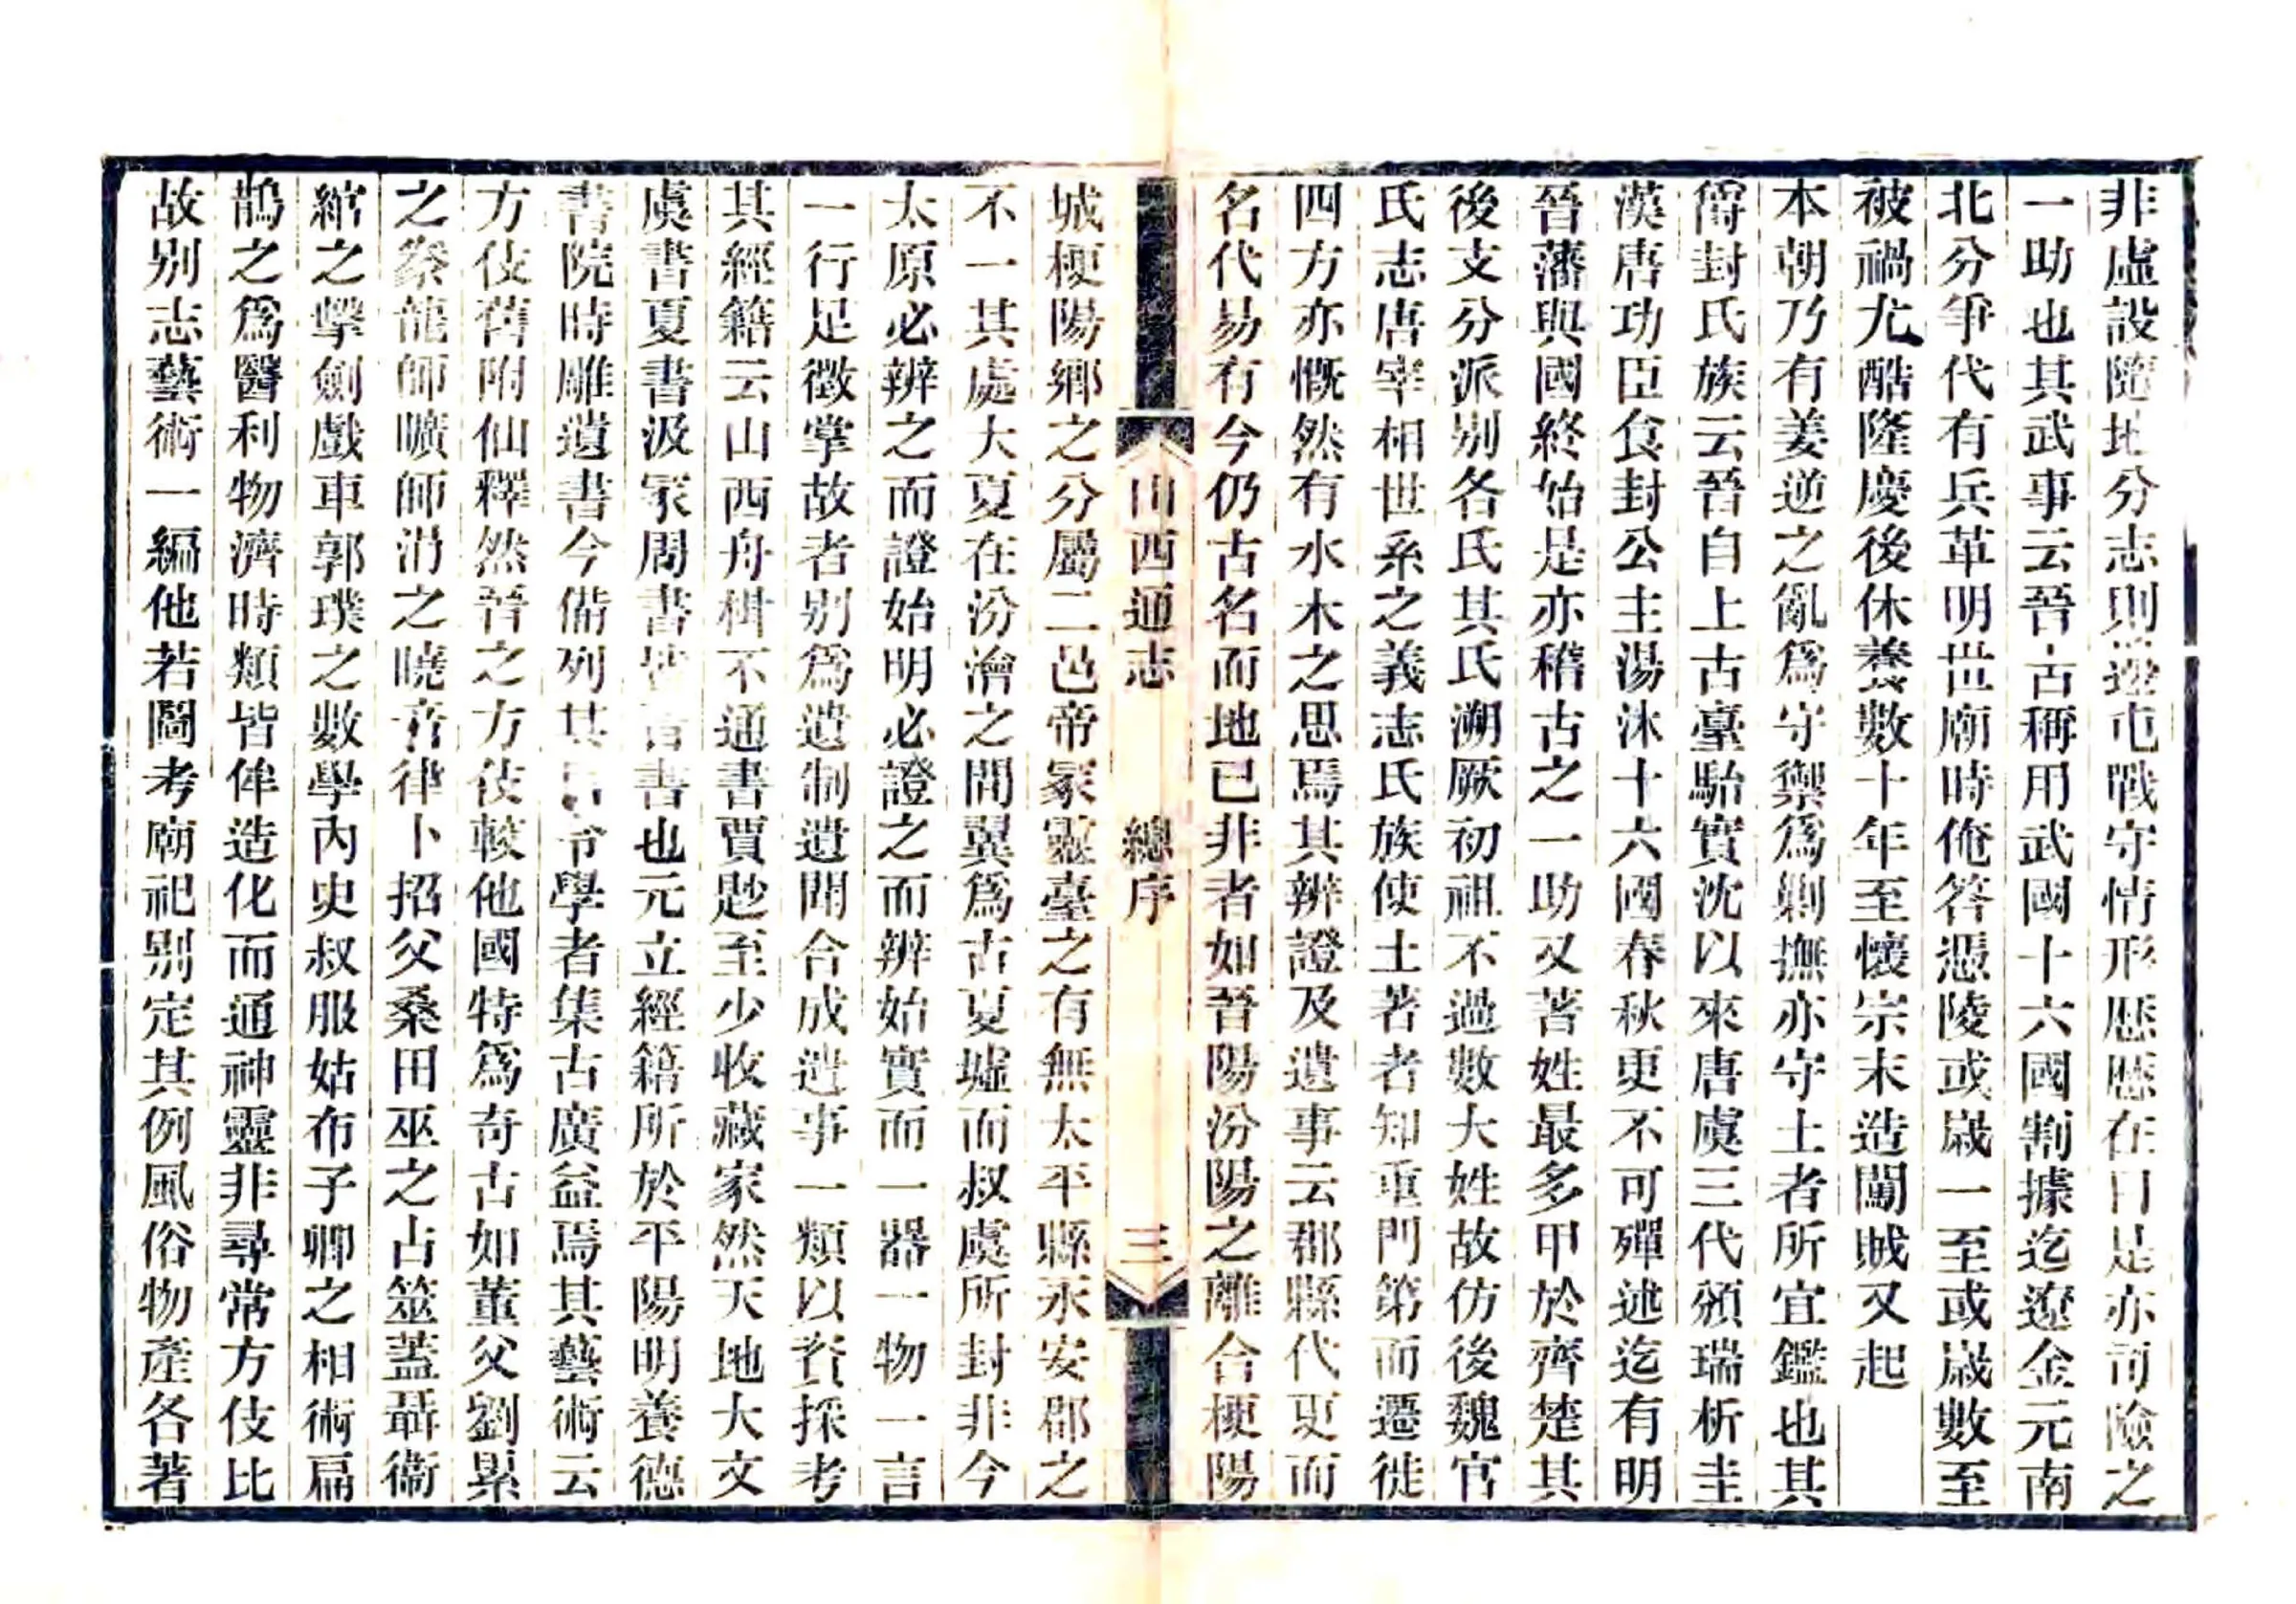 非虛設隨地分志則邊屯戰守情形歷歷在目是亦司險之
一助也其武事云晉古稱用武國十六國割據迄遼金元南
北分爭代有兵革明世廟時俺答憑陵或歲一至或歲數至
被禍尤酷隆慶後休養數十年至懷宗末造闖賊又起
本朝乃有姜逆之亂爲守禦爲剿撫亦守土者所宜鑑也其
爵封氏族云晉自上古臺駘實沈以來唐虞三代頒瑞析圭
漢唐功臣食封公主湯沐十六國春秋更不可殫述迄有明
晉藩與國終始是亦稽古之一助又著姓最多甲於齊楚其
後支分派別各氏其氏溯厥初祖不過數大姓故仿後魏官
氏志唐宰相世系之義志氏族使土著者知重門第而遷徙
四方亦慨然有水木之思焉其辨證及遺事云郡縣代更而
名代易有今仍古名而地已非者如晉陽汾陽之離合梗陽
山西通志 總序 三
城梗陽鄉之分屬二邑帝冢靈臺之有無太平縣永安郡之
不一其處大夏在汾澮之間翼爲古夏墟而叔虞所封非今
太原必辨之而證始明必證之而辨始實而一器一物一言
一行足徵掌故者別爲遺制遺聞合成遺事一類以資採考
其經籍云山西舟楫不通書賈尠至少收藏家然天地大文
虞書夏書汲冢周書皆晉書也元立經籍所於平陽明養德
書院時雕遺書今備列其目令學者集古廣益焉其藝術云
方伎舊附仙釋然晉之方伎較他國特爲奇古如董父劉累
之豢龍師曠師涓之曉音律卜招父桑田巫之占筮蓋聶衞
綰之擊劍戲車郭璞之數學內史叔服姑布子卿之相術扁
鵲之爲醫利物濟時類皆侔造化而通神靈非尋常方伎比
故別志藝術一編他若圖考廟祀別定其例風俗物產各著